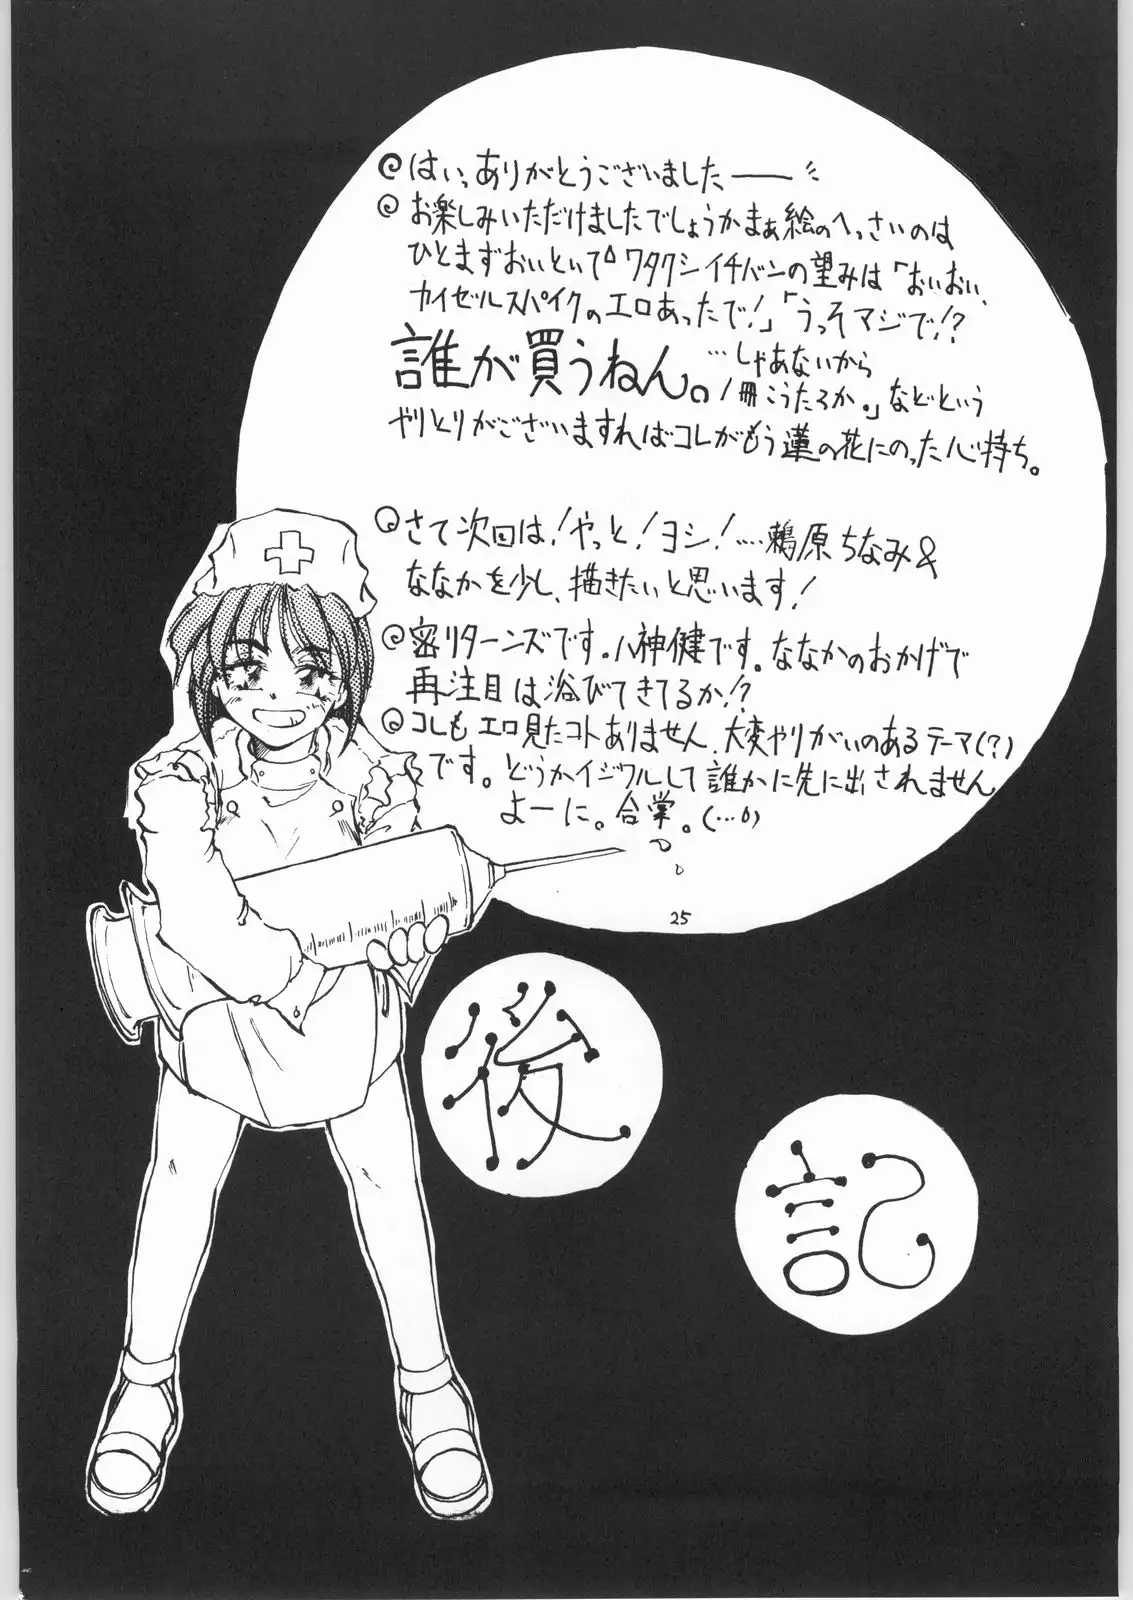 はいっありがとうございましたー
お楽しみいただけましたでしょうかまぁ絵のへっさいのは
ひとまずおいといて ワタクシイチバンの望みは「おいおい、
カイゼルスパイクのエロあったで!」「うっそマジで!?
誰が買うねん。…しゃあないから
1冊こうたろか。」などという
やりとりがございますればコレがもう蓮の花にのった心持ち。
さて次回は!やっと!ヨシ!……鶫原ちなみ&
ななかを少し、描きたいと思います!
密リターンズです。八神健です。ななかのおかげで
再注目は浴びてきてるか!?
コレもエロ見たコトありません、大変やりがいのあるテーマ(?)
です。どうかイジワルして誰かに先に出されません
よーに。合掌。(…0)
25
後
記